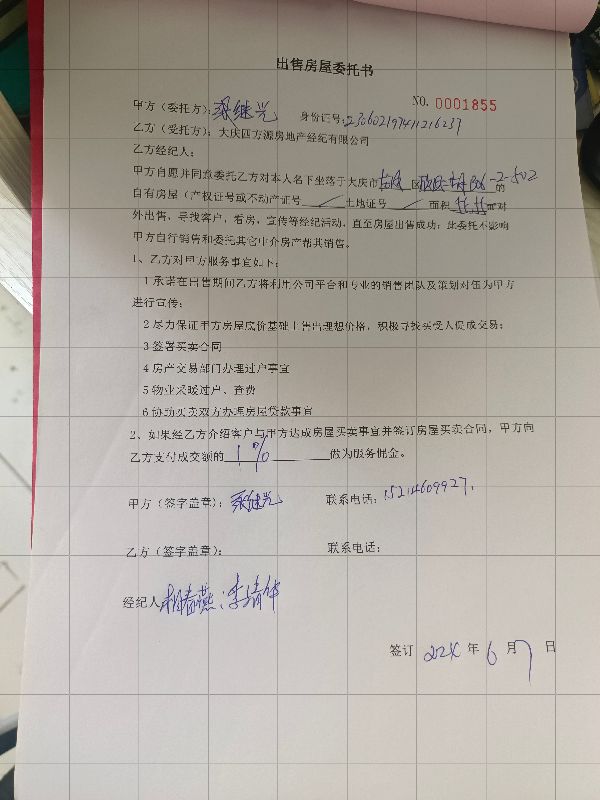 出售房屋委托书
NO. 0001855
甲方（委托方）：梁继兴 身份证号：230602197411216237
乙方（受托方）：大庆四方源房地产经纪有限公司
乙方经纪人：
甲方自愿并同意委托乙方对本人名下坐落于大庆市 区 -2-502 的
自有房屋（产权证号或不动产证号 / 土地证号 / 面积 ㎡对
外出售，寻找客户，看房，宣传等经纪活动，直至房屋出售成功；此委托不影响
甲方自行销售和委托其它中介房产帮其销售。
1、乙方对甲方服务事宜如下：
1 承诺在出售期间乙方将利用公司平台和专业的销售团队及策划对任为甲方
进行宣传；
2 尽力保证甲方房屋底价基础上售出理想价格，积极寻找买受人促成交易；
3 签署买卖合同
4 房产交易部门办理过户事宜
5 物业采暖过户、查费
6 协助买卖双方办理房屋贷款事宜
2、如果经乙方介绍客户与甲方达成房屋买卖事宜并签订房屋买卖合同，甲方向
乙方支付成交额的 1% 做为服务佣金。
甲方（签字盖章）：梁继兴 联系电话：15214609927.
乙方（签字盖章）： 联系电话：
经纪人 春燕：李清华
签订 2024 年 6 月 7 日